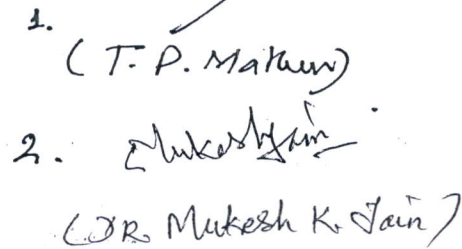 1.
(T. P. Mathur)
2. Mukesh Jain
(DR. Mukesh K. Jain)